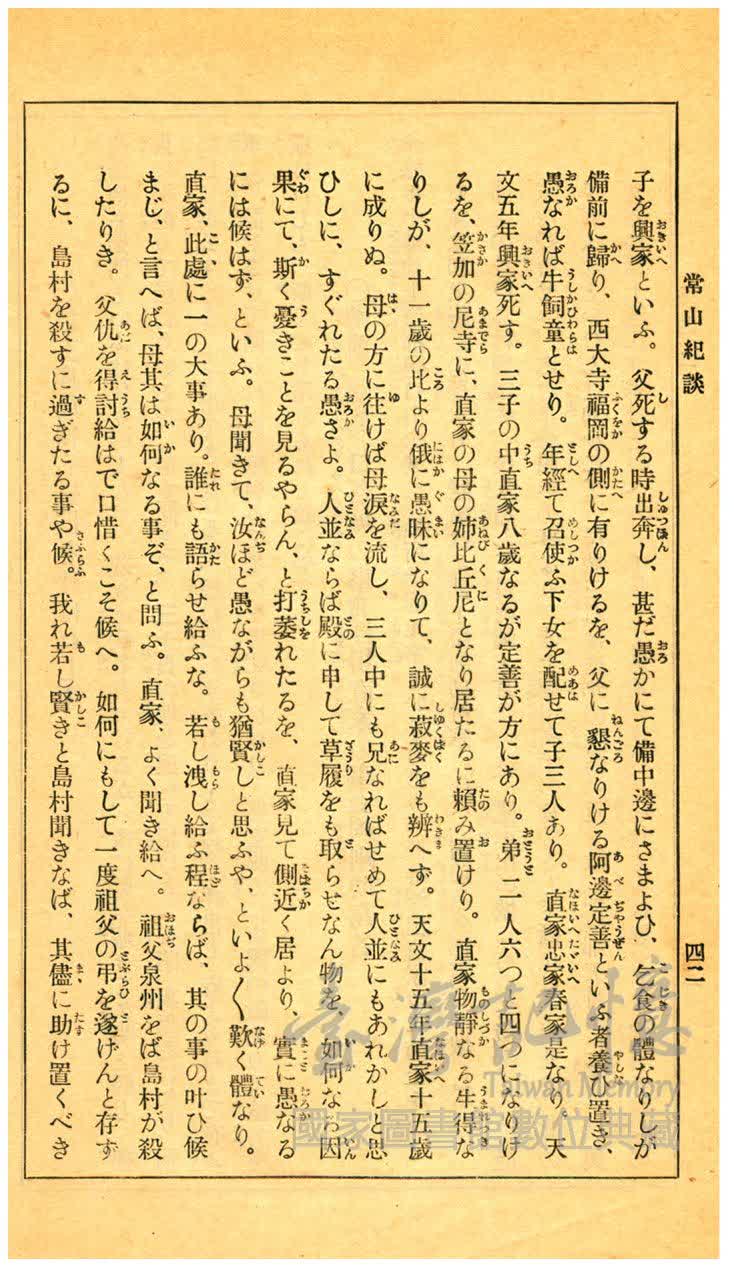 常山紀談
四二
子を興家といふ。父死する時出奔し、甚だ愚かにて備中邊にさまよひ、乞食の體なりしが
備前に歸り、西大寺福岡の側に有りけるを、父に懇なりける阿邊定善といふ者養ひ置き、
愚なれば牛飼童とせり。年經て召使ふ下女を配せて子三人あり。直家忠家春家是なり。天
文五年興家死す。三子の中直家八歲なるが定善が方にあり。弟二人六つと四つになりけ
るを、笠加の尼寺に、直家の母の姉比丘尼となり居たるに賴み置けり。直家物靜なる生得な
りしが、十一歲の比より俄に愚昧になりて、誠に菽麥をも辨へず。天文十五年直家十五歲
に成りぬ。母の方に往けば母淚を流し、三人中にも兄なればせめて人並にもあれかしと思
ひしに、すぐれたる愚さよ。人並ならば殿に申して草履をも取らせなん物を、如何なる因
果にて、斯く憂きことを見るやらん、と打萎れたるを、直家見て側近く居より、實に愚なる
には候はず、といふ。母聞きて、汝ほど愚ながらも猶賢しと思ふや、といよ〱歎く體なり。
直家、此處に一の大事あり。誰にも語らせ給ふな。若し洩し給ふ程ならば、其の事の叶ひ候
まじ、と言へば、母其は如何なる事ぞ、と問ふ。直家、よく聞き給へ。祖父泉州をば島村が殺
したりき。父仇を得討給はで口惜くこそ候へ。如何にもして一度祖父の弔を遂げんと存ず
るに、島村を殺すに過ぎたる事や候。我れ若し賢きと島村聞きなば、其儘に助け置くべき
臺灣記憶
Taiwan Memory
國家圖書館數位典藏